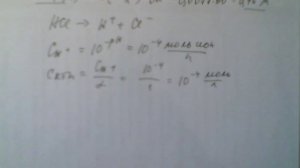 HCl → H⁺ + Cl⁻
C_H⁺ = 10^-pH = 10^-4 моль ион/л
C_кон = C_H⁺/α = 10^-4/1 = 10^-4 моль/л